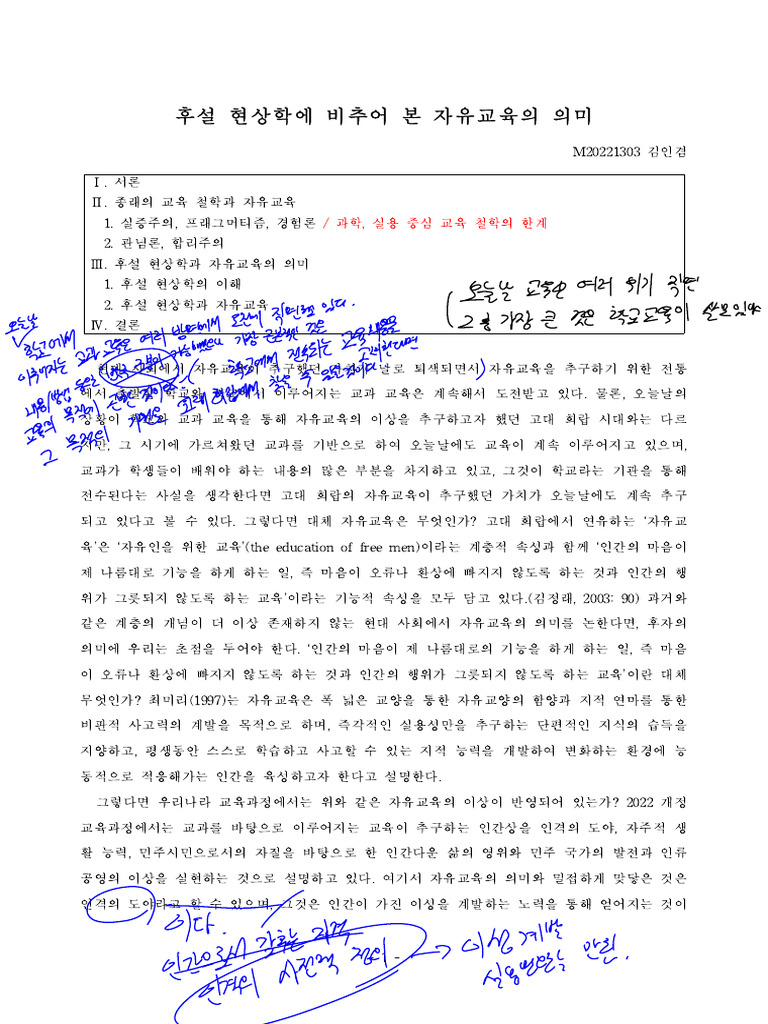 후설 현상학에 비추어 본 자유교육의 의미
M20221303 김인겸
Ⅰ. 서론
Ⅱ. 종래의 교육 철학과 자유교육
1. 실증주의, 프래그머티즘, 경험론 / 과학, 실용 중심 교육 철학의 한계
2. 관념론, 합리주의
Ⅲ. 후설 현상학과 자유교육의 의미
1. 후설 현상학의 이해
2. 후설 현상학과 자유교육
Ⅳ. 결론
오늘날 교육은 여러 위기 직면
그 중 가장 큰 것은 학교교육이
오늘날
학교에서
이루어지는 교과 교육은 여러 방면에서 도전에 직면하고 있다.
가장 근본적인 것은
학교에서 전수되는 교육내용
내용/방법 등은
교육의 목적이
그 목적의
고대 희랍에서 찾을 수
현대 사회에서 자유교육이 추구했던 날로 퇴색되면서 자유교육을 추구하기 위한 전통
에서 이루어지는 교과 교육은 계속해서 도전받고 있다. 물론, 오늘날의
상황이 교과 교육을 통해 자유교육의 이상을 추구하고자 했던 고대 희랍 시대와는 다르
지만, 그 시기에 가르쳐왔던 교과를 기반으로 하여 오늘날에도 교육이 계속 이루어지고 있으며,
교과가 학생들이 배워야 하는 내용의 많은 부분을 차지하고 있고, 그것이 학교라는 기관을 통해
전수된다는 사실을 생각한다면 고대 희랍의 자유교육이 추구했던 가치가 오늘날에도 계속 추구
되고 있다고 볼 수 있다. 그렇다면 대체 자유교육은 무엇인가? 고대 희랍에서 연유하는 ‘자유교
육’은 ‘자유인을 위한 교육’(the education of free men)이라는 계층적 속성과 함께 ‘인간의 마음이
제 나름대로 기능을 하게 하는 일, 즉 마음이 오류나 환상에 빠지지 않도록 하는 것과 인간의 행
위가 그릇되지 않도록 하는 교육’이라는 기능적 속성을 모두 담고 있다.(김정래, 2003: 90) 과거와
같은 계층의 개념이 더 이상 존재하지 않는 현대 사회에서 자유교육의 의미를 논한다면, 후자의
의미에 우리는 초점을 두어야 한다. ‘인간의 마음이 제 나름대로의 기능을 하게 하는 일, 즉 마음
이 오류나 환상에 빠지지 않도록 하는 것과 인간의 행위가 그릇되지 않도록 하는 교육’이란 대체
무엇인가? 최미리(1997)는 자유교육은 폭 넓은 교양을 통한 자유교양의 함양과 지적 연마를 통한
비판적 사고력의 개발을 목적으로 하며, 즉각적인 실용성만을 추구하는 단편적인 지식의 습득을
지양하고, 평생동안 스스로 학습하고 사고할 수 있는 지적 능력을 개발하여 변화하는 환경에 능
동적으로 적응해가는 인간을 육성하고자 한다고 설명한다.
그렇다면 우리나라 교육과정에서는 위와 같은 자유교육의 이상이 반영되어 있는가? 2022 개정
교육과정에서는 교과를 바탕으로 이루어지는 교육이 추구하는 인간상을 인격의 도야, 자주적 생
활 능력, 민주시민으로서의 자질을 바탕으로 한 인간다운 삶의 영위와 민주 국가의 발전과 인류
공영의 이상을 실현하는 것으로 설명하고 있다. 여기서 자유교육의 의미와 밀접하게 맞닿은 것은
인격의 도야라고 할 수 있으며, 그것은 인간이 가진 이성을 계발하는 노력을 통해 얻어지는 것이
이다.
인간으로서 갖추는 자격
인격의 사전적 정의. → 이성 계발